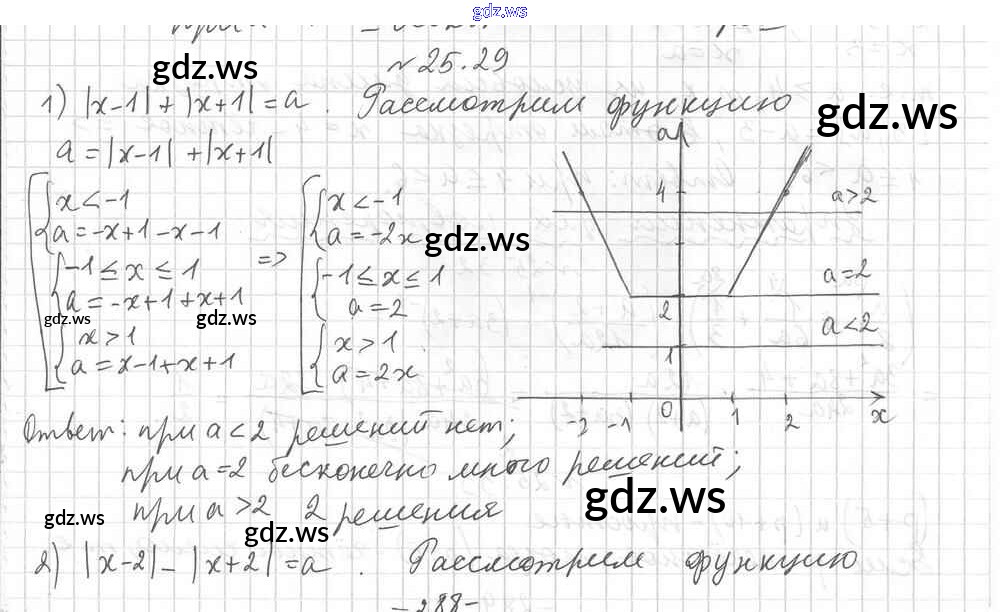 gdz.ws
№25.29
gdz.ws
1) |x-1| + |x+1| = a. Рассмотрим функцию
gdz.ws
a = |x-1| + |x+1|
x < -1
a = -x+1-x-1
-1 ≤ x ≤ 1
a = -x+1+x+1
x > 1
a = x-1+x+1
=>
x < -1
a = -2x
-1 ≤ x ≤ 1
a = 2
x > 1
a = 2x
gdz.ws
gdz.ws
gdz.ws
a
4
a>2
a=2
2
a<2
1
-2 -1 0 1 2 x
Ответ: при a < 2 решений нет;
при a = 2 бесконечно много решений;
при a > 2 2 решения
gdz.ws
gdz.ws
gdz.ws
2) |x-2| - |x+2| = a. Рассмотрим функцию
-288-